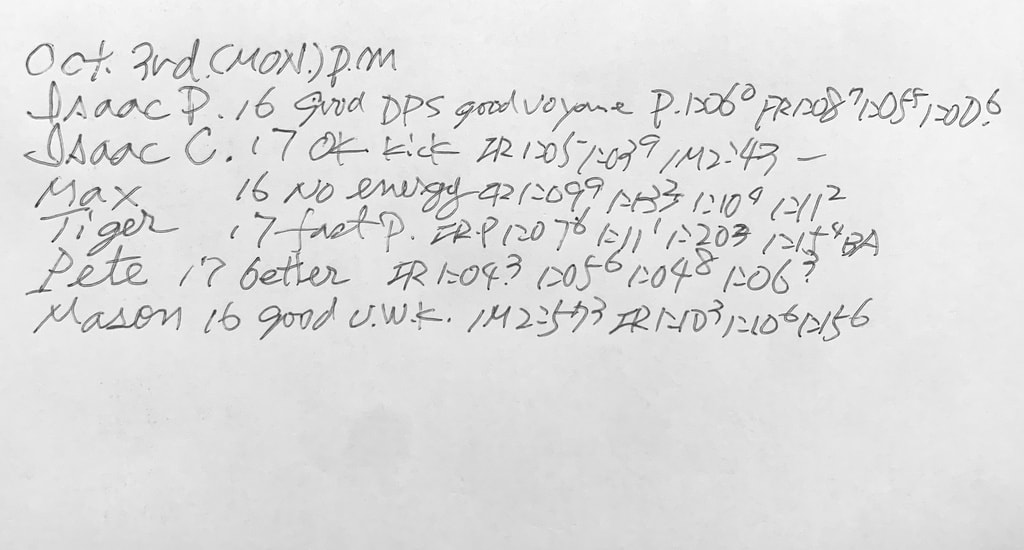 Oct. 3rd. (MON.) p.m
Isaac P. 16 good DPS good P. 1:06⁰ FR 1:08⁷ 1:05⁵
Isaac C. 17 OK kick IR 1:05 1:03⁹ IM 2:43 —
Max 16 No energy 1:09⁹ 1:13² 1:10⁹ 1:11²
Tiger 17 fast P. IR.P 1:07⁶ 1:11¹ 1:20³ 1:15⁴ BA
Pete 17 better IR 1:04³ 1:05⁶ 1:04⁸ 1:06³
Mason 16 good U.W.K. IM 2:57³ IR 1:10³ 1:10⁶ 1:15⁶